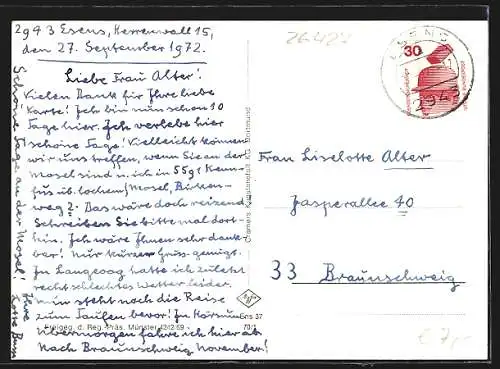 2943 Esens, Herrenwall 15,
den 27. September 1972.
Liebe Frau Alter!
Vielen Dank für Ihre liebe
Karte! Ich bin nun schon 10
Tage hier. Ich verlebe hier
schöne Tage! Vielleicht können
wir uns treffen, wenn Sie an der
Mosel sind u. ich in 5591
bei Cochem/Mosel,
weg 2. Das wäre doch reizend.
Schreiben Sie bitte mal dort-
hin. Ich wäre Ihnen sehr dank-
bar! Nur kurzer Gruss genügt.
In Langeoog hatte ich zuletzt
recht schlechtes Wetter leider.
Nun steht noch die Reise
zum Taufen bevor! In
Übermorgen fahre ich hier ab
Nach Braunschweig November!
Schöne Tage an der Mosel! Ihre
Lotte
Freigeg. d. Reg.-Präs. Münster 4242/69
Cramers Kunstanstalt KG, Dortmund
Ens 37
70/1
26427
ESENS
2943
30
Frau Liselotte Alter
Jasperallee 40
33 Braunschweig
€ 7,-